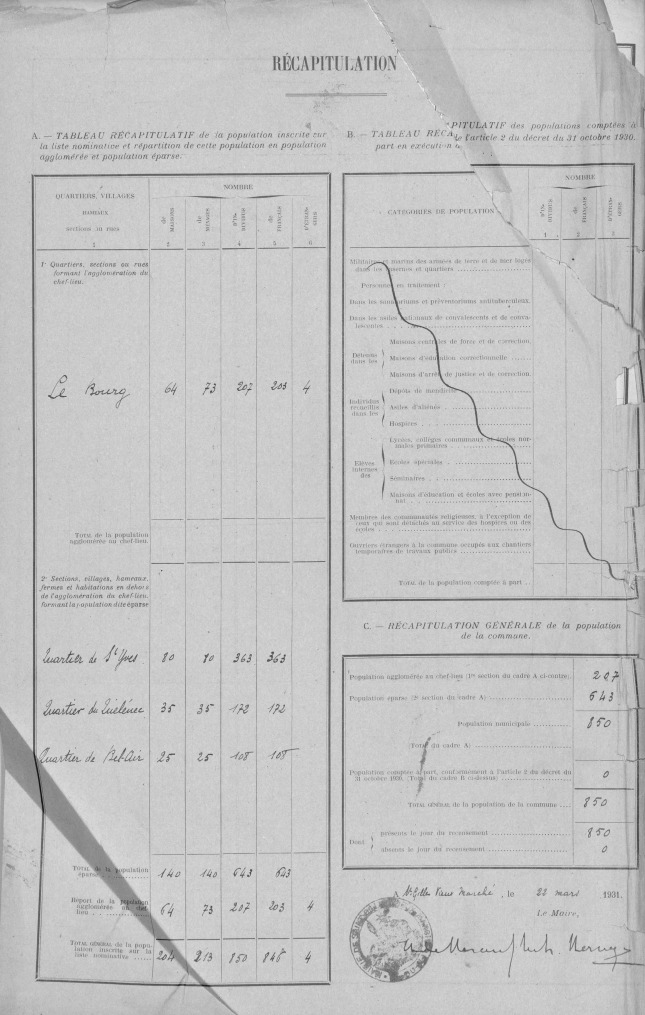 RÉCAPITULATION
A. — TABLEAU RÉCAPITULATIF de la population inscrite sur
la liste nominative et répartition de cette population en population
agglomérée et population éparse.
QUARTIERS, VILLAGES
HAMEAUX
sections ou rues
NOMBRE
de MAISONS
de MÉNAGES
d'IN-DIVIDUS
de FRANÇAIS
d'ÉTRAN-GERS
1 2 3 4 5 6
1° Quartiers, sections ou rues
formant l'agglomération du
chef-lieu.
Le Bourg 64 73 207 203 4
TOTAL de la population
agglomérée au chef-lieu.
2° Sections, villages, hameaux,
fermes et habitations en dehors
de l'agglomération du chef-lieu,
formant la population dite éparse
Quartier de St Yves 80 80 363 363
Quartier du Quélénec 35 35 172 172
Quartier de Bel-Air 25 25 108 108
TOTAL de la population
éparse 140 140 643 643
Report de la population
agglomérée au chef-
lieu 64 73 207 203 4
TOTAL GÉNÉRAL de la popu-
lation inscrite sur la
liste nominative 204 213 850 846 4
B. — TABLEAU RÉCAPITULATIF des populations comptées à
part en exécution de l'article 2 du décret du 31 octobre 1930.
CATÉGORIES DE POPULATION
NOMBRE
d'IN-DIVIDUS
de FRANÇAIS
d'ÉTRAN-GERS
1 2 3
Militaires et marins des armées de terre et de mer logés
dans les casernes et quartiers
Personnes en traitement :
Dans les sanatoriums et préventoriums antituberculeux.
Dans les asiles nationaux de convalescents et de conva-
lescentes
Détenus
dans les
Maisons centrales de force et de correction.
Maisons d'éducation correctionnelle
Maisons d'arrêt, de justice et de correction.
Individus
recueillis
dans les
Dépôts de mendicité
Asiles d'aliénés
Hospices
Elèves
internes
des
Lycées, collèges communaux et écoles nor-
males primaires
Ecoles spéciales
Séminaires
Maisons d'éducation et écoles avec pension-
nat
Membres des communautés religieuses, à l'exception de
ceux qui sont détachés au service des hospices ou des
écoles
Ouvriers étrangers à la commune occupés aux chantiers
temporaires de travaux publics
TOTAL de la population comptée à part
C. — RÉCAPITULATION GÉNÉRALE de la population
de la commune.
Population agglomérée au chef-lieu (1re section du cadre A ci-contre) 207
Population éparse (2e section du cadre A) 643
Population municipale 850
Total du cadre A
Population comptée à part, conformément à l'article 2 du décret du
31 octobre 1930. (Total du cadre B ci-dessus) 0
TOTAL GÉNÉRAL de la population de la commune 850
Dont
présents le jour du recensement 850
absents le jour du recensement 0
A St Gilles Vieux Marché, le 22 mars 1931.
Le Maire,